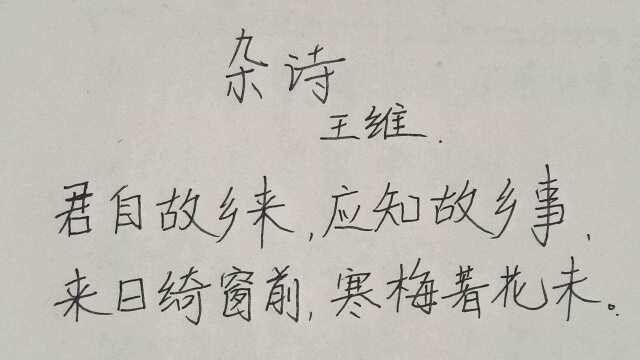 杂诗
王维.
君自故乡来,应知故乡事,
来日绮窗前,寒梅著花未。